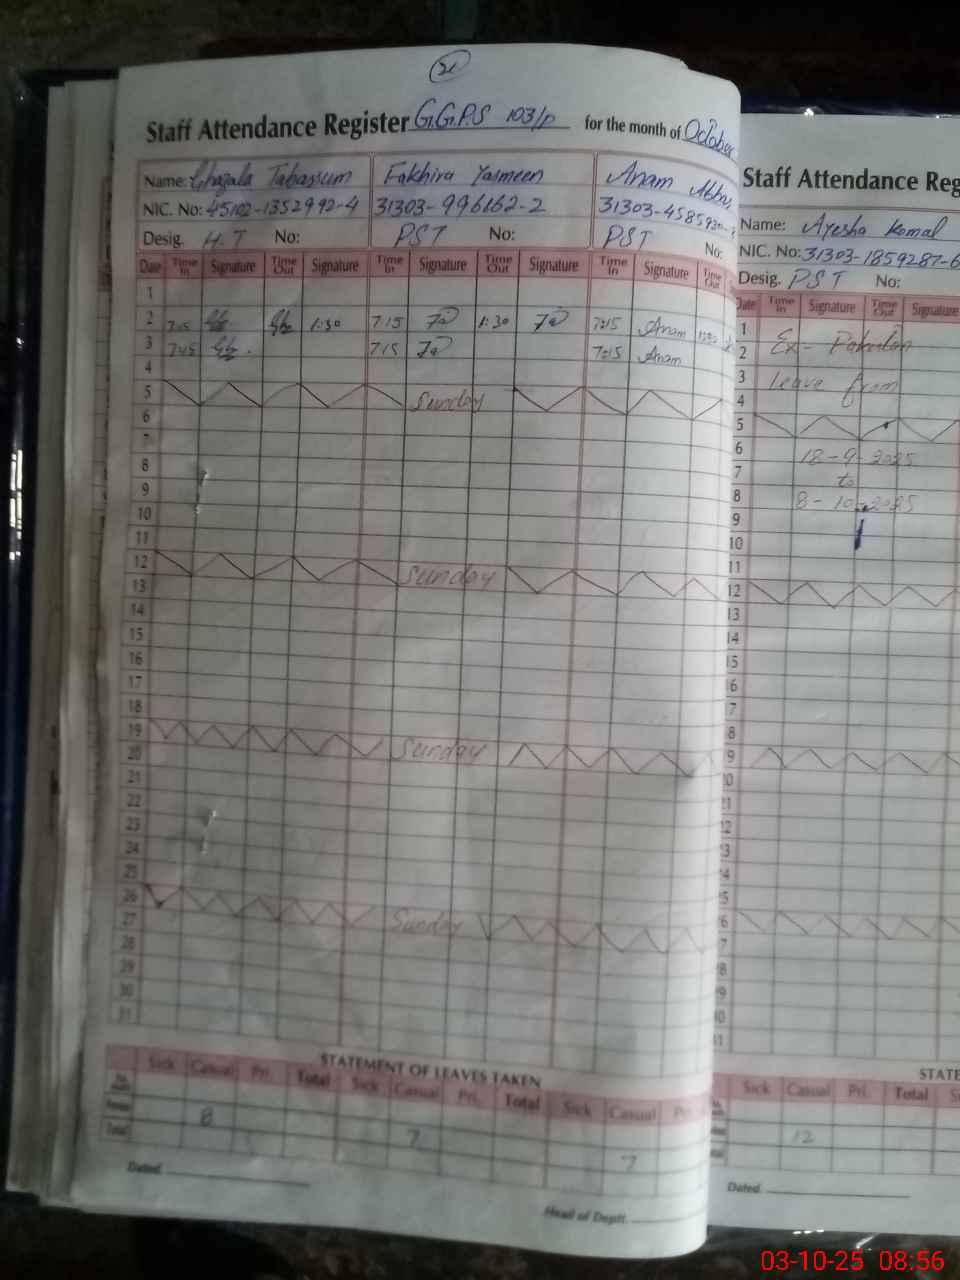 21
Staff Attendance Register G.G.P.S 103/P for the month of October
Name: Ghazala Tabassum Fakhira Yasmeen Anam Abbas
NIC. No: 45102-1352992-4 31303-996162-2 31303-4585930-
Desig. H.T No: PST No: PST No:
Date Time In Signature Time Out Signature Time In Signature Time Out Signature Time In Signature Time Out
1
2 7:15 1:30 7:15 1:30 7:15 Anam
3 7:45 7:15 7:15 Anam
4
5 Sunday
6
7
8
9
10
11
12 Sunday
13
14
15
16
17
18
19 Sunday
20
21
22
23
24
25
26 Sunday
27
28
29
30
31
STATEMENT OF LEAVES TAKEN
Sick Casual Pri. Total Sick Casual Pri. Total Sick Casual
8
Total 7
7
Dated
Head of Deptt.
Staff Attendance Reg
Name: Ayesha Komal
NIC. No: 31303-1859287-6
Desig. PST No:
Date Time In Signature Time Out Signature
1
2 Ex-Pakistan
3 leave from
4
5
6 18-9-2025
7 to
8 8-10-2025
9
10
11
12
13
14
15
16
7
8
9
0
1
2
3
4
5
6
7
8
9
0
1
STATE
Sick Casual Pri. Total
12
Dated
03-10-25 08:56